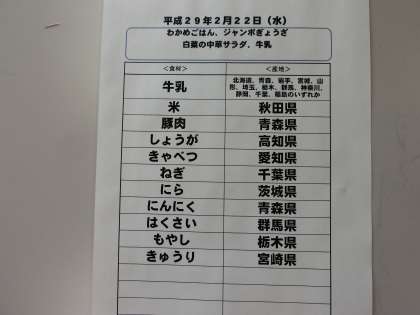 平成29年2月22日（水）
わかめごはん、ジャンボぎょうざ
白菜の中華サラダ、牛乳
＜食材＞ ＜産地＞
牛乳 北海道、青森、岩手、宮城、山
形、埼玉、栃木、群馬、神奈川、
静岡、千葉、福島のいずれか
米 秋田県
豚肉 青森県
しょうが 高知県
きゃべつ 愛知県
ねぎ 千葉県
にら 茨城県
にんにく 青森県
はくさい 群馬県
もやし 栃木県
きゅうり 宮崎県